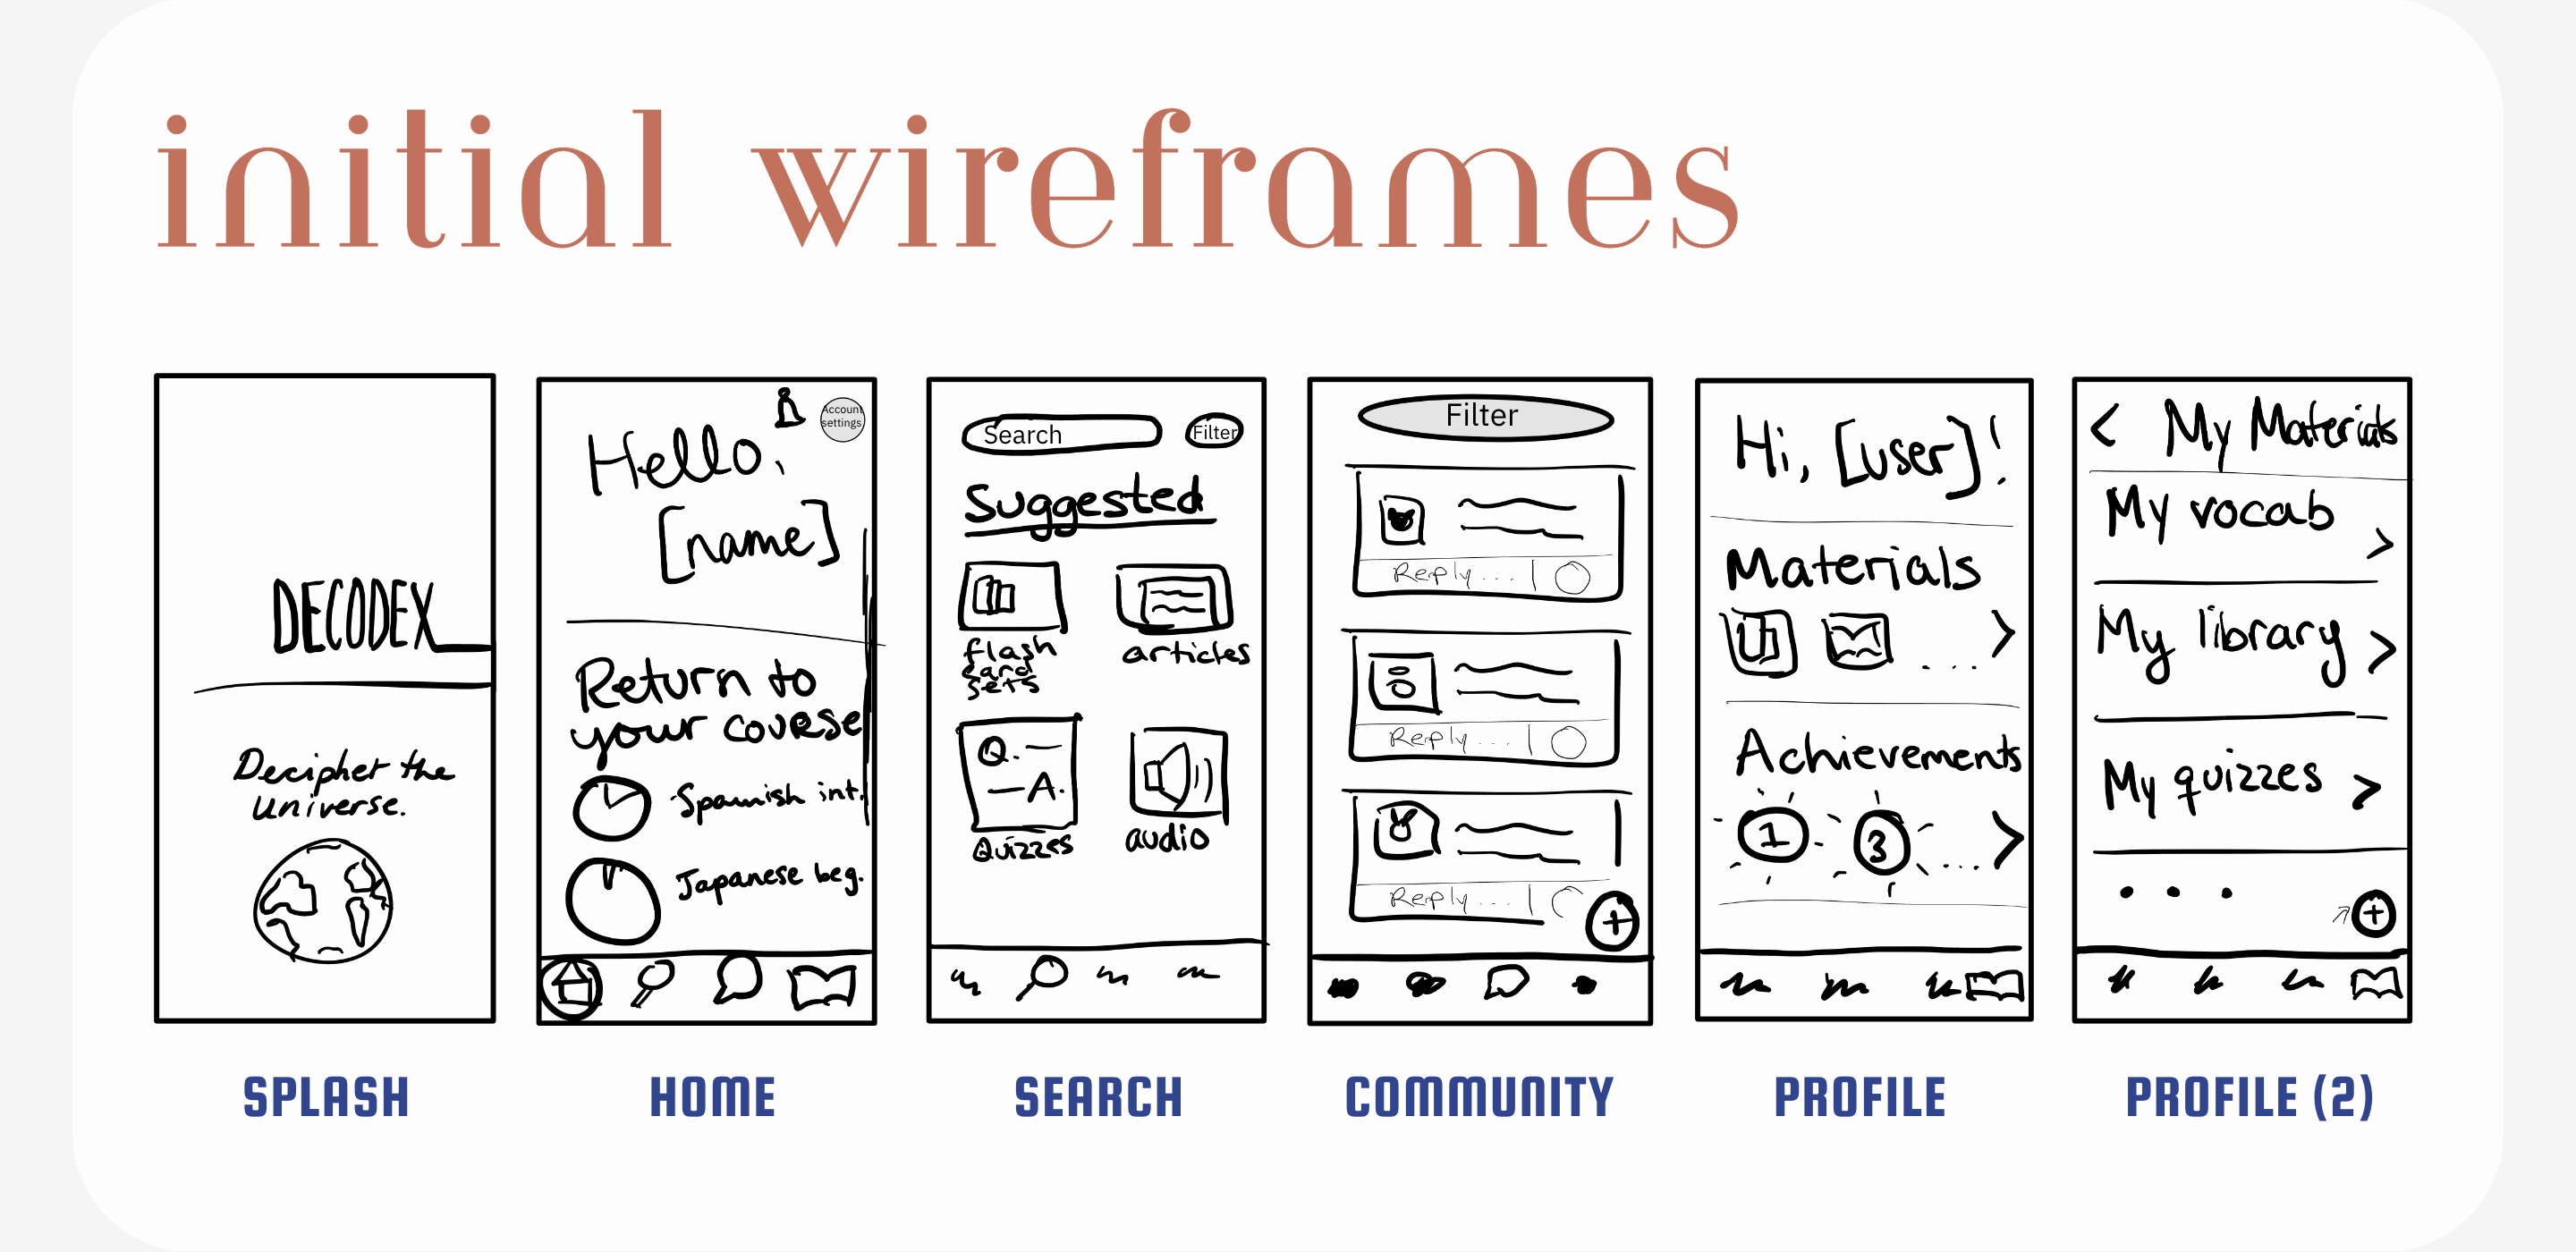 initial wireframes
DECODEX
Decipher the
universe.
SPLASH
Account
settings
Hello,
[name]
Return to
your course
Spanish int.
Japanese beg.
HOME
Search
Filter
Suggested
flash
card
sets
articles
Q.
A.
Quizzes
audio
SEARCH
Filter
Reply...
Reply...
Reply...
+
COMMUNITY
Hi, [user]!
Materials
...
>
Achievements
1
3
...
>
PROFILE
< My Materials
My vocab
>
My library >
My quizzes >
...
+
PROFILE (2)